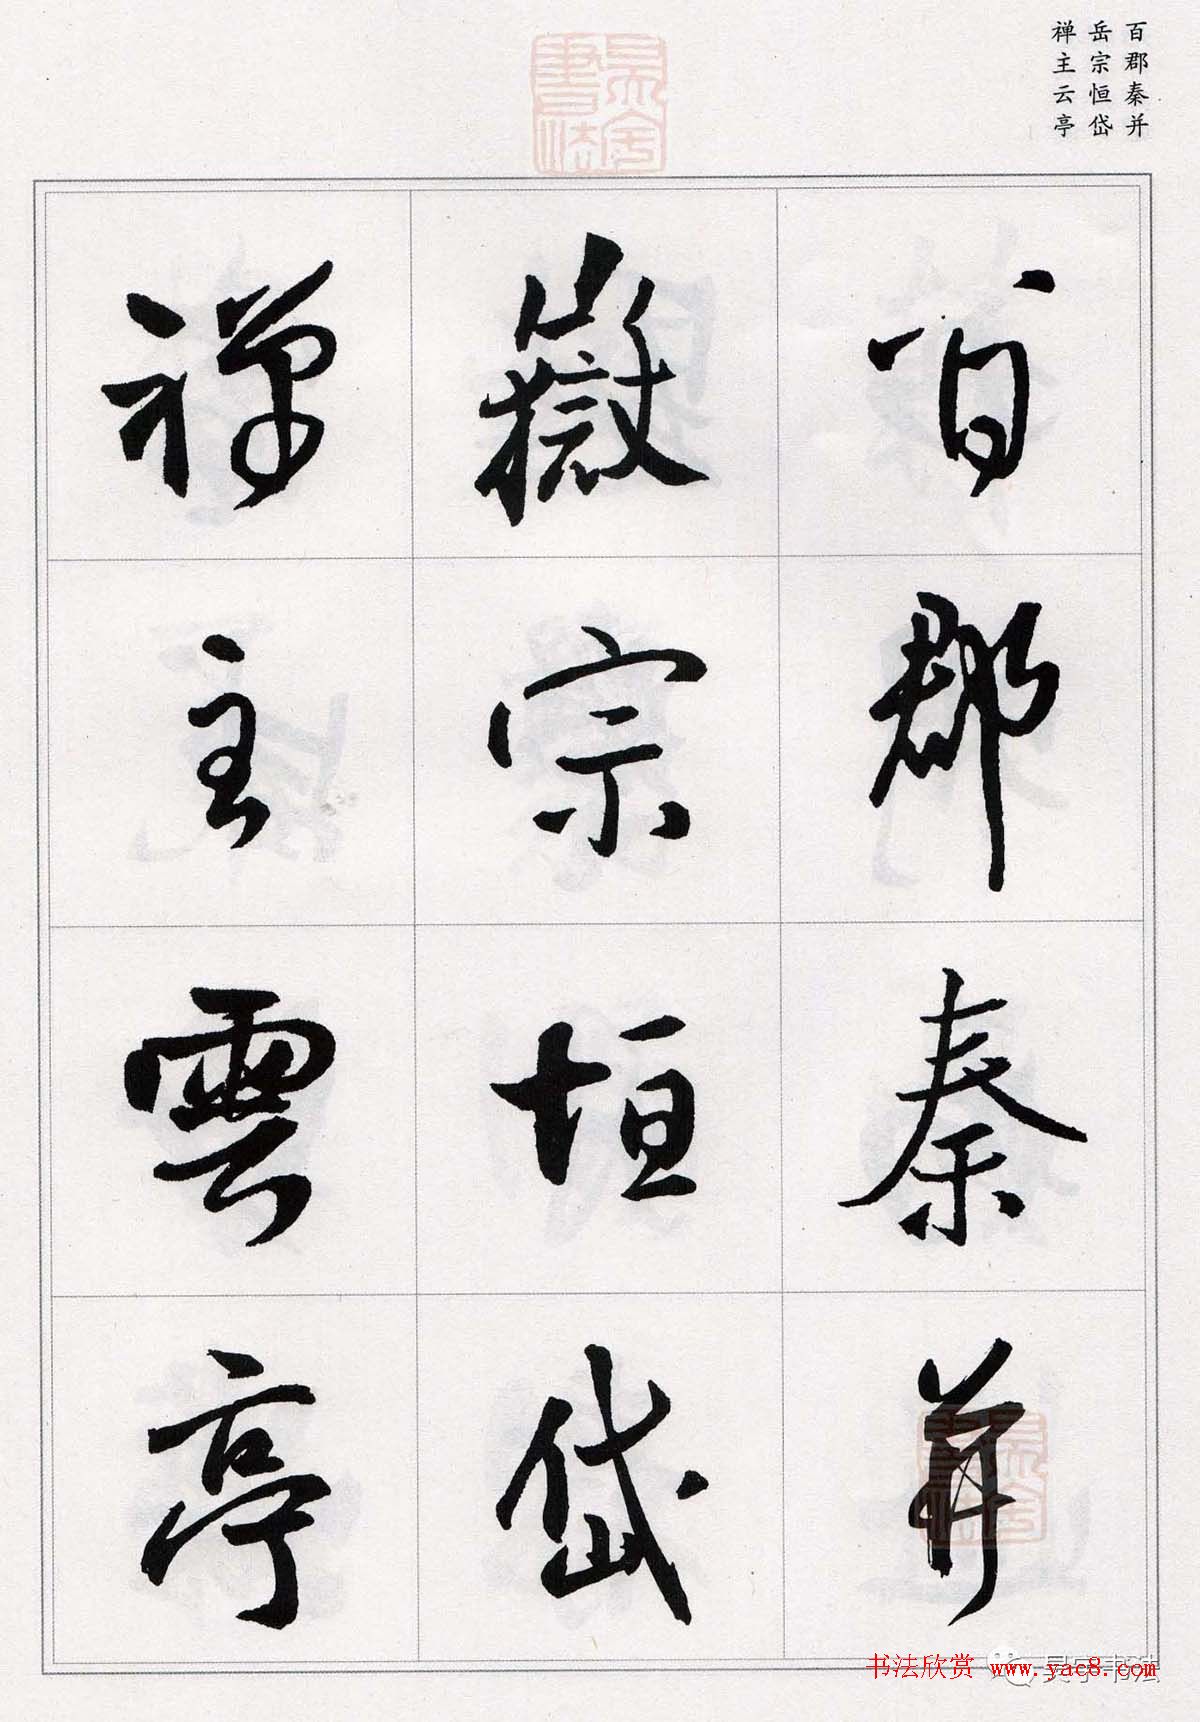 百郡秦并
岳宗恒岱
禅主云亭
百郡秦并
嶽宗垣岱
禅主雲亭
书法欣赏 www.yac8.com